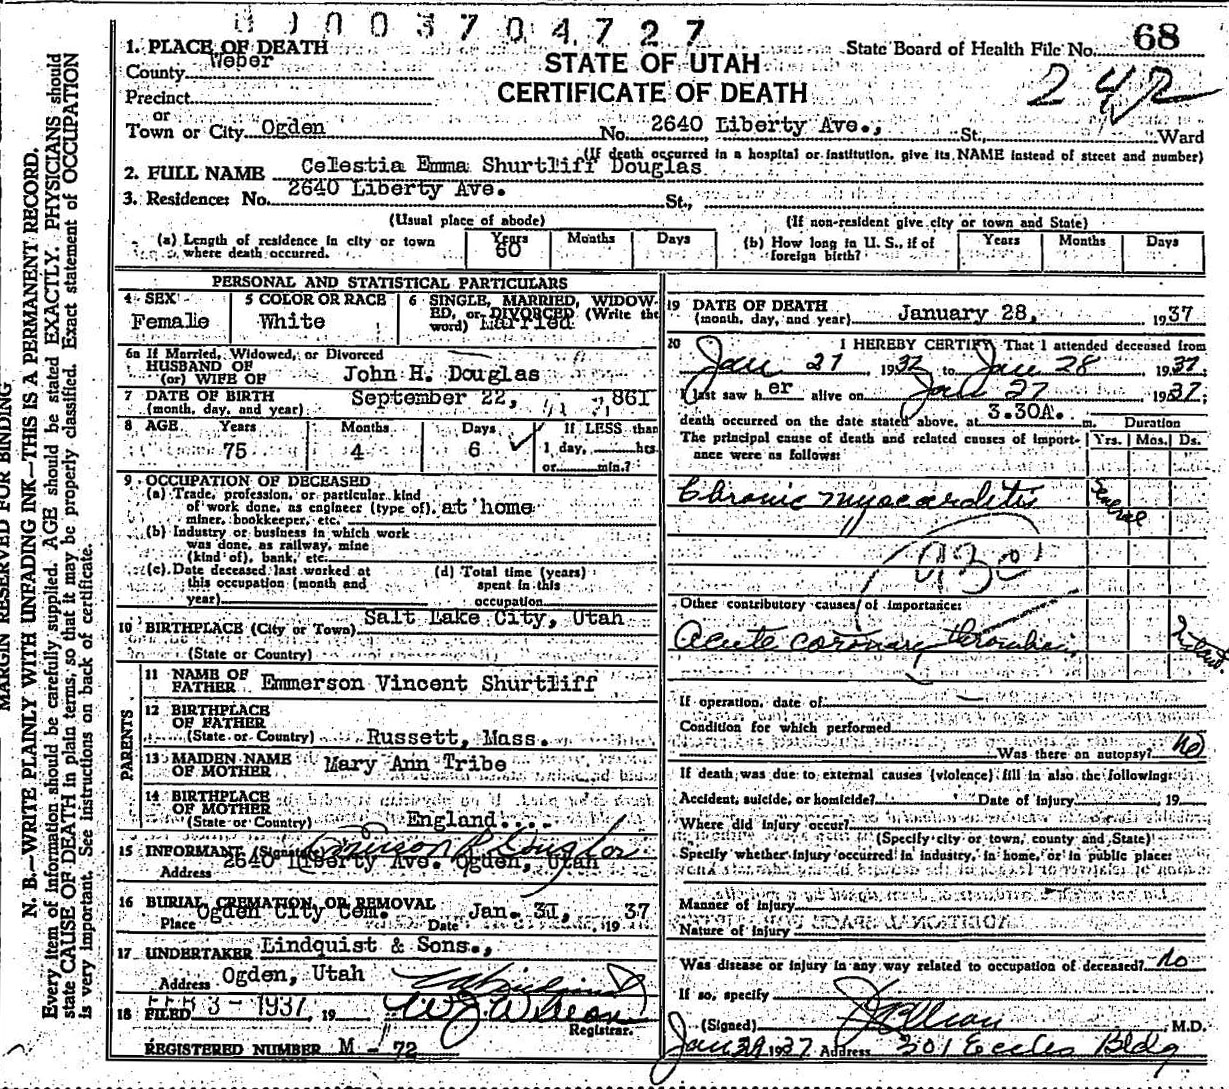 0003704727
1. PLACE OF DEATH
County Weber
Precinct
or
Town or City Ogden
STATE OF UTAH
CERTIFICATE OF DEATH
State Board of Health File No. 68
242
No. 2640 Liberty Ave., St., Ward
(If death occurred in a hospital or institution, give its NAME instead of street and number)
2. FULL NAME Celestia Emma Shurtliff Douglas
3. Residence: No. 2640 Liberty Ave. St.,
(Usual place of abode) (If non-resident give city or town and State)
(a) Length of residence in city or town where death occurred. Years 60 Months Days
(b) How long in U. S., if of foreign birth? Years Months Days
PERSONAL AND STATISTICAL PARTICULARS
4 SEX Female
5 COLOR OR RACE White
6 SINGLE, MARRIED, WIDOWED, or DIVORCED (Write the word) Married
6a If Married, Widowed, or Divorced
HUSBAND OF
(or) WIFE OF John H. Douglas
7 DATE OF BIRTH
(month, day, and year) September 22, 1861
8 AGE Years 75 Months 4 Days 6 If LESS than 1 day, hrs or min.?
9 OCCUPATION OF DECEASED
(a) Trade, profession, or particular kind
of work done, as engineer (type of), at home
miner, bookkeeper, etc.
(b) Industry or business in which work
was done, as railway, mine
(kind of), bank, etc.
(c) Date deceased last worked at
this occupation (month and
year)
(d) Total time (years)
spent in this
occupation
10 BIRTHPLACE (City or Town) Salt Lake City, Utah
(State or Country)
PARENTS
11 NAME OF FATHER Emmerson Vincent Shurtliff
12 BIRTHPLACE OF FATHER
(State or Country) Russett, Mass.
13 MAIDEN NAME OF MOTHER Mary Ann Tribe
14 BIRTHPLACE OF MOTHER
(State or Country) England....
15 INFORMANT (Signature) Douglas
Address 2640 Liberty Ave. Ogden, Utah
16 BURIAL, CREMATION, OR REMOVAL
Place Ogden City Cem. Date Jan. 31, 1937
17 UNDERTAKER Lindquist & Sons.,
Address Ogden, Utah
18 FILED FEB 3 - 1937, 19
Registrar.
REGISTERED NUMBER M - 72
19 DATE OF DEATH
(month, day, and year) January 28, 1937
20 I HEREBY CERTIFY That I attended deceased from
Jan 27 1937 to Jan 28 1937;
I last saw her alive on Jan 27 1937;
death occurred on the date stated above, at 3.30A. m.
The principal cause of death and related causes of importance were as follows:
Duration
Yrs. Mos. Ds.
Chronic myocarditis Several
930
Other contributory causes of importance:
Acute coronary thrombosis
If operation, date of
Condition for which performed
Was there an autopsy? No
If death was due to external causes (violence) fill in also the following:
Accident, suicide, or homicide? Date of injury 19
Where did injury occur?
(Specify city or town, county and State)
Specify whether injury occurred in industry, in home, or in public place:
Manner of injury
Nature of injury
Was disease or injury in any way related to occupation of deceased? No
If so, specify
(Signed) M.D.
Jan 29 1937 Address 301 Eccles Bldg
MARGIN RESERVED FOR BINDING
N. B.—WRITE PLAINLY WITH UNFADING INK—THIS IS A PERMANENT RECORD.
Every item of information should be carefully supplied. AGE should be stated EXACTLY. PHYSICIANS should
state CAUSE OF DEATH in plain terms, so that it may be properly classified. Exact statement of OCCUPATION
is very important. See instructions on back of certificate.